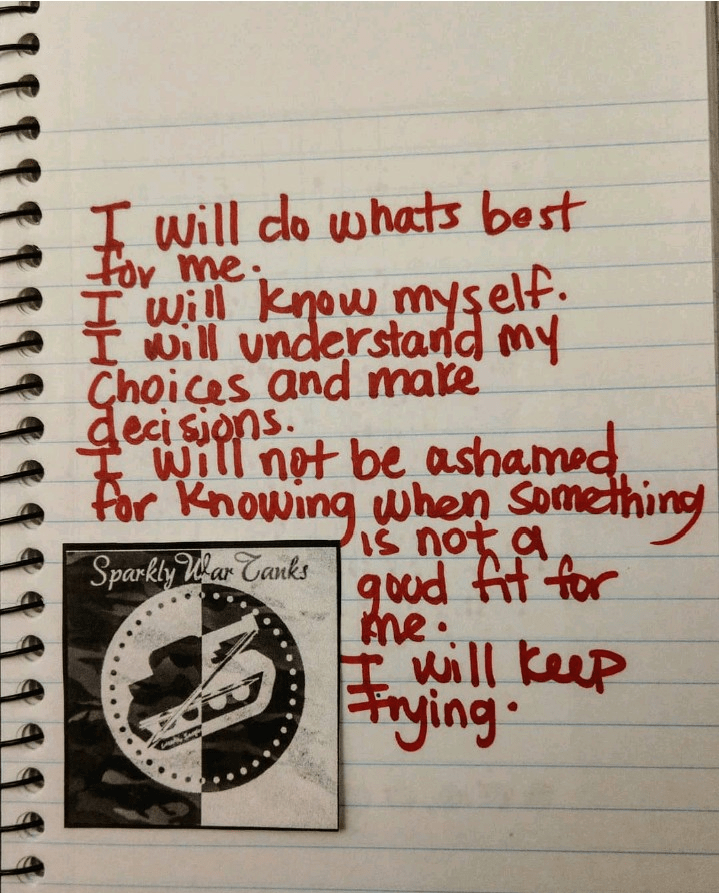 I will do whats best
for me.
I will know myself.
I will understand my
choices and make
decisions.
I will not be ashamed
for knowing when something
is not a
good fit for
me.
I will keep
trying.
Sparkly War Tanks